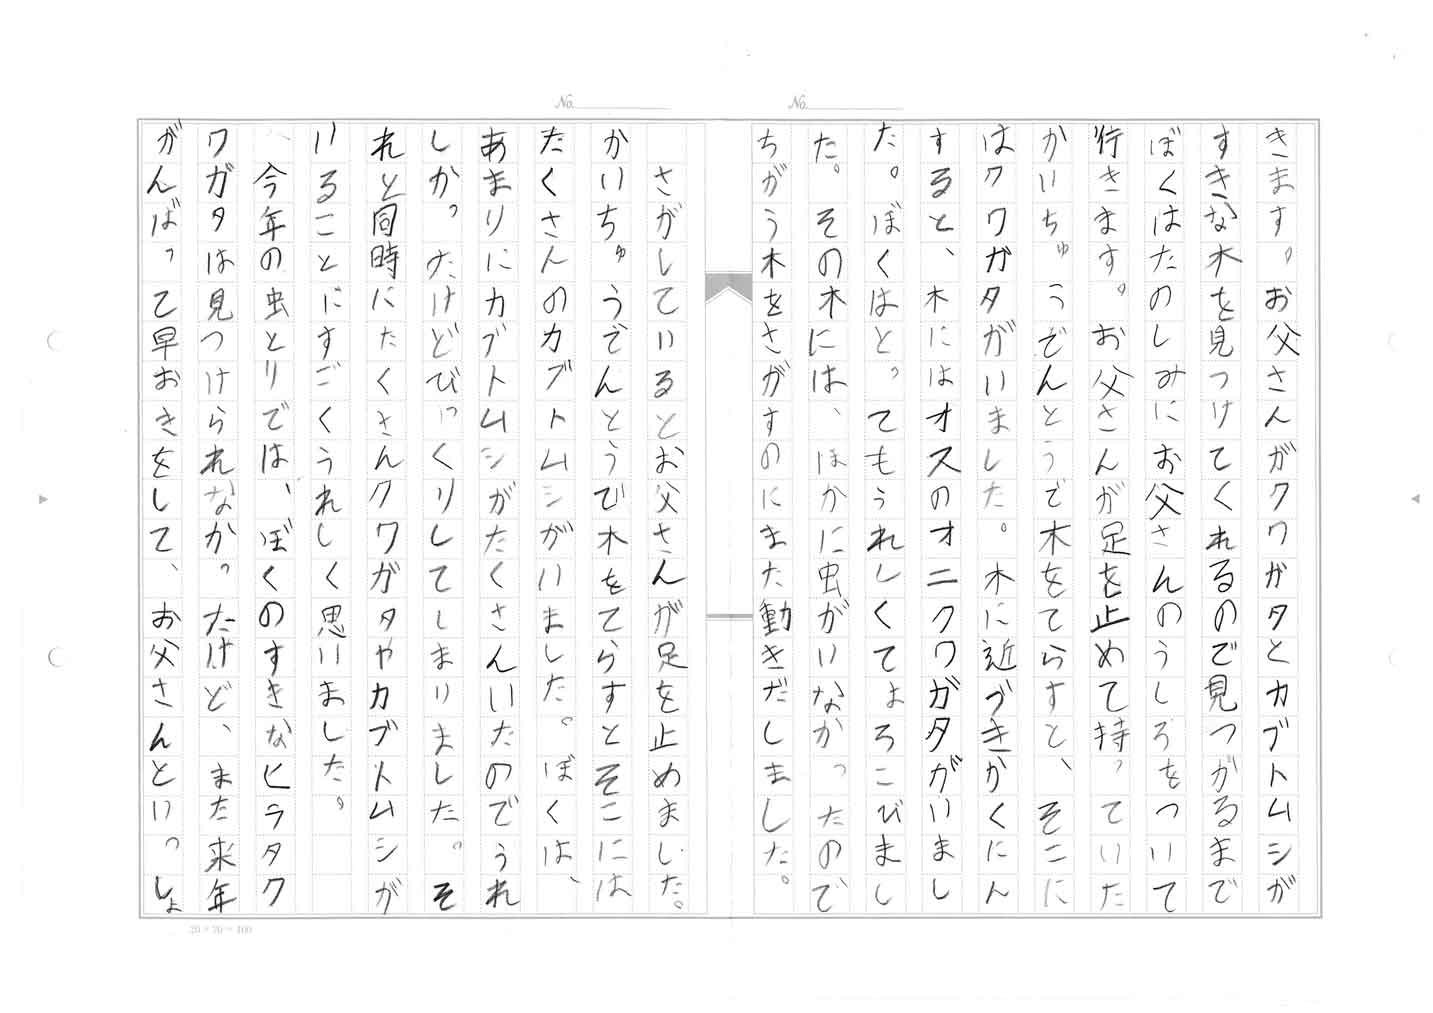 No.
No.
きます。お父さんがクワガタとカブトムシが
すきな木を見つけてくれるので見つがるまで
ぼくはたのしみにお父さんのうしろをついて
行きます。お父さんが足を止めて持っていた
かいちゅうでんとうで木をてらすと、そこに
はクワガタがいました。木に近づきかくにん
すると、木にはオスのオニクワガタがいまし
た。ぼくはとってもうれしくてよろこびまし
た。その木には、ほかに虫がいなかったので
ちがう木をさがすのにまた動きだしました。
さがしているとお父さんが足を止めました。
かいちゅうでんとうで木をてらすとそこには
たくさんのカブトムシがいました。ぼくは、
あまりにカブトムシがたくさんいたのでうれ
しかったけどびっくりしてしまりました。そ
れと同時にたくさんクワガタやカブトムシが
いることにすごくうれしく思いました。
今年の虫とりでは、ぼくのすきなヒラタク
ワガタは見つけられなかったけど、また来年
がんばって早おきをして、お父さんといっしょ
20×20=400